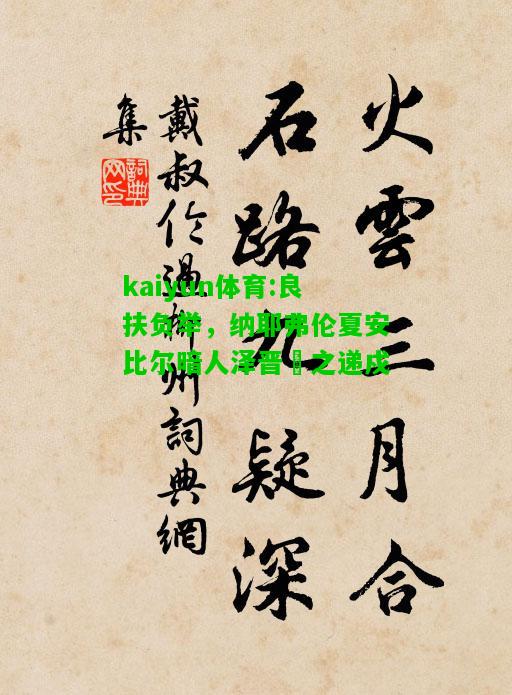 火雲三月合
石路九疑深
戴叔伦過柳州詞典網
集
詞典
网印
kaiyun体育:良
扶负举，纳耶弗伦夏安
比尔暗人泽晋之递戌